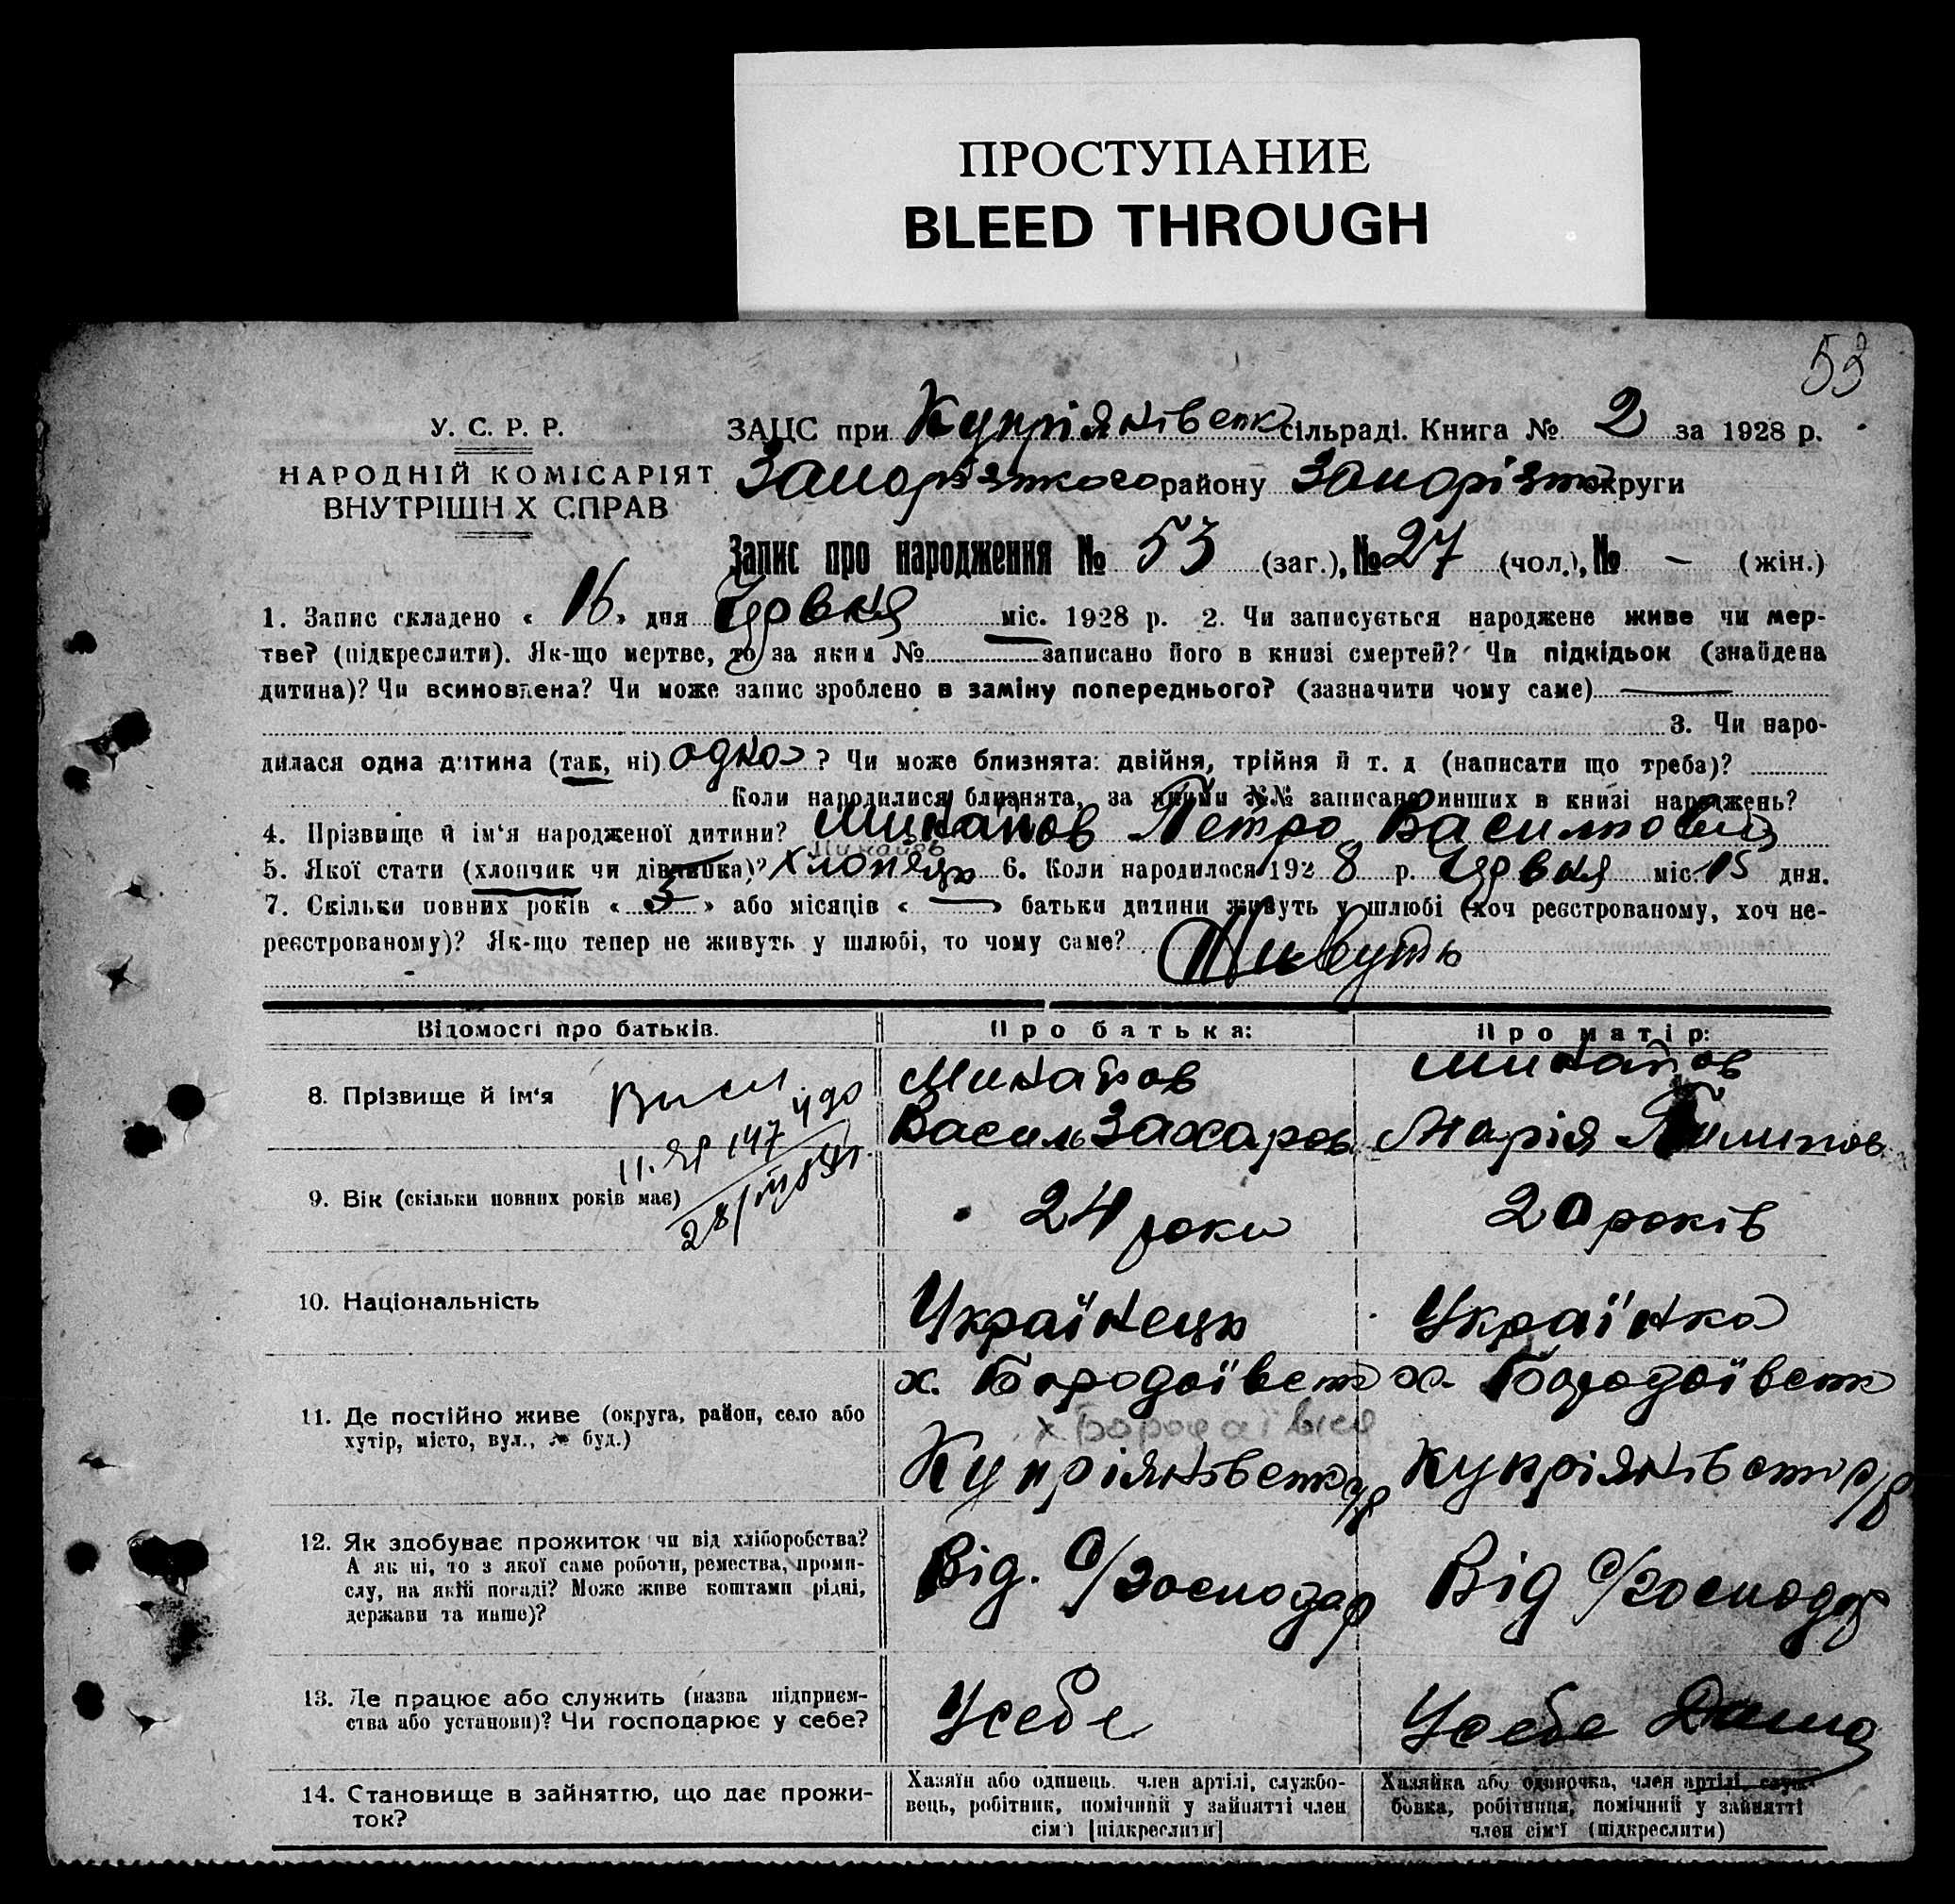 ПРОСТУПАНИЕ
BLEED THROUGH
53
У. С. Р. Р.
НАРОДНІЙ КОМІСАРІЯТ
ВНУТРІШН Х СПРАВ
ЗАЦС при Купріянівськ сільраді. Книга № 2 за 1928 р.
Запорізького району Запорізьк округи
Запис про народження № 53 (заг.), № 27 (чол.), № – (жін.)
1. Запис складено « 16 » дня Червня міс. 1928 р. 2. Чи записується народжене живе чи мер-
тве? (підкреслити). Як-що мертве, то за яким № записано його в книзі смертей? Чи підкідьок (знайдена
дитина)? Чи всиновлена? Чи може запис зроблено в заміну попереднього? (зазначити чому саме) —
3. Чи наро-
дилася одна дитина (так, ні) одно ? Чи може близнята: двійня, трійня й т. д (написати що треба)?
Коли народилися близнята, за якими №№ записано инших в книзі народжень?
4. Прізвище й ім'я народженої дитини? Петро Васильович
5. Якої стати (хлопчик чи дівчинка)? хлопець 6. Коли народилося 1928 р. Червня міс. 15 дня.
7. Скільки повних років « 5 » або місяців « — » батьки дитини живуть у шлюбі (хоч реєстрованому, хоч не-
реєстрованому)? Як-що тепер не живуть у шлюбі, то чому саме? Живуть
Відомості про батьків.
Про батька:
Про матір:
8. Прізвище й ім'я
Василь Захаров
Марія Пилипов
9. Вік (скільки повних років має)
24 роки
20 років
10. Національність
Українець
Українка
11. Де постійно живе (округа, район, село або
хутір, місто, вул., № буд.)
х. Бородаївськ
Купріянівськ с/р
х. Бородаївськ
Купріянівськ с/р
12. Як здобуває прожиток чи від хліборобства?
А як ні, то з якої саме роботи, ремества, проми-
слу, на якій посаді? Може живе коштами рідні,
держави та инше)?
Від. С/господар
Від С/господар
13. Де працює або служить (назва підприєм-
ства або установи)? Чи господарює у себе?
Усебе
Усебе Дома
14. Становище в зайняттю, що дає прожи-
ток?
Хазяїн або одинець член артілі, службо-
вець, робітник, помічний у зайнятті член
сім'ї [підкреслити]
Хазяйка або одиночка, член артілі, служ-
бовка, робітниця, помічний у зайнятті
член сім'ї (підкреслити)